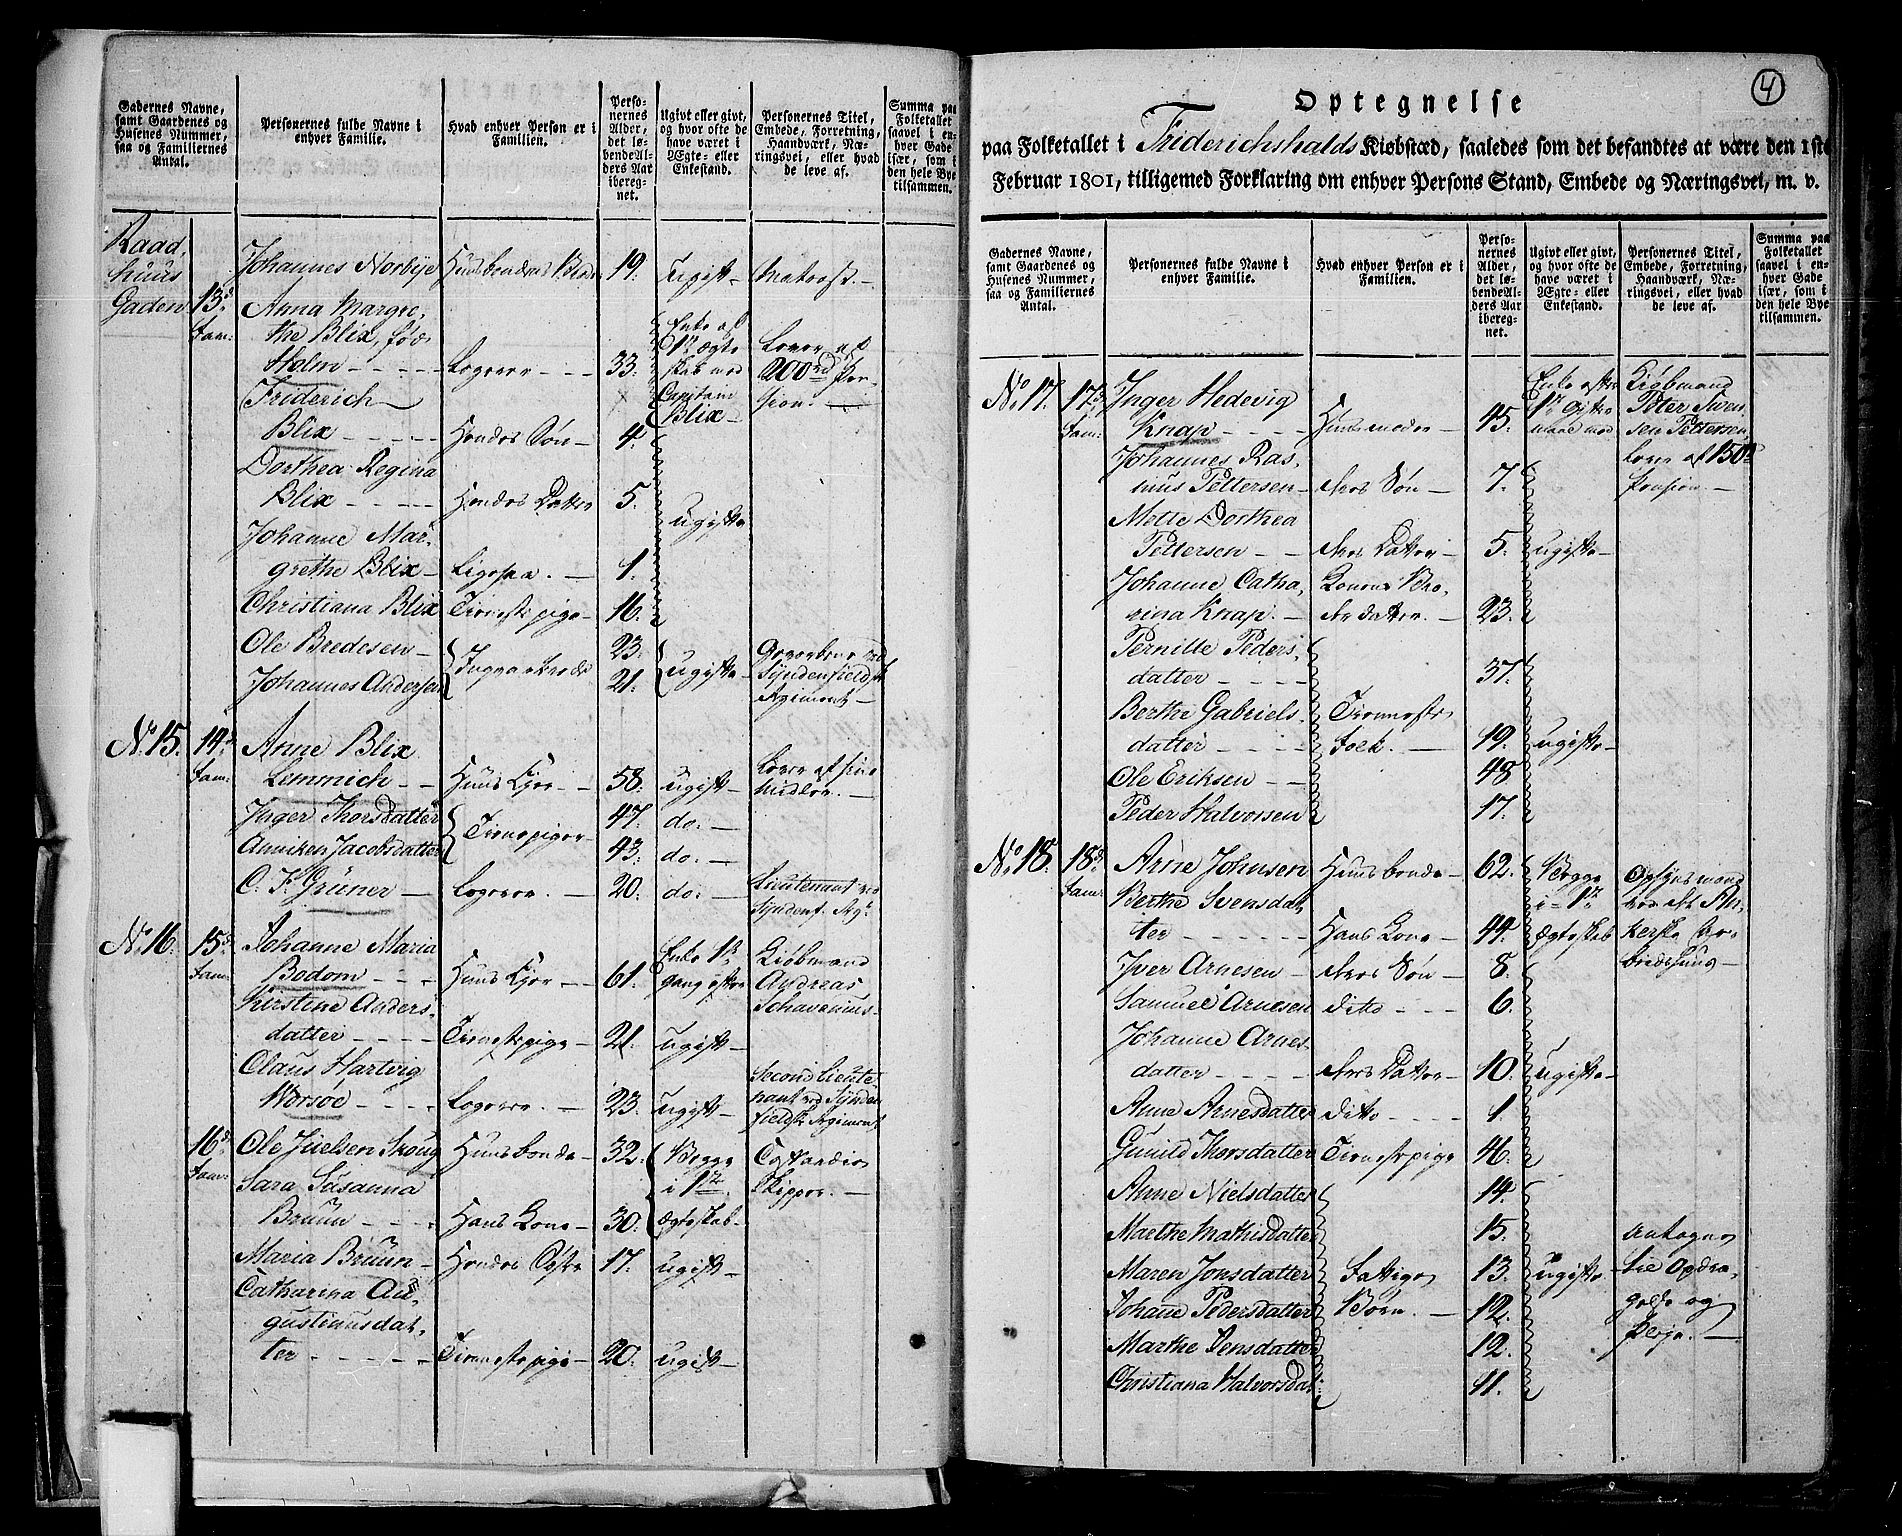 Gadernes Navne,
samt Gaardenes og
Husenes Nummer,
saa og Familiernes
Antal.
Personernes fulde Navne i
enhver Familie.
Hvad enhver Person er i
Familien.
Perso-
nernes
Alder,
det lø-
bendeAl-
ders Aar
ibereg-
net.
Ugivt eller givt,
og hvor ofte de
have været i
Ægte- eller
Enkestand.
Personernes Titel,
Embede, Forretning,
Haandværk, Næ-
ringsvei, eller hvad
de leve af.
Summa paa
Folketallet
saavel i en-
hver Gade
især, som i
den hele Bye
tilsammen.
Raad,
huus
Gaden
Johannes Norbye Huusbondens Broder 19. ugift Matros.
13de Fam: Anna Margre,
the Blix, fød
Holm Logerer 33. Enke af 1te Ægteskab med Capitain Blix Lever af 200 rd Pension.
Friderich
Blix Hendes Søn 4.
Dorthea Regina
Blix Hendes Datter 5. ugifte
Johanne Mar,
grethe Blix Ligesaa. 1.
Christiana Blix Tienestepige 16.
Ole Bredesen 23.
Johannes Andersen 21. ugifte
No. 15. 14de Fam: Anne Blix
Lemmich Huus Ejer 58. ugift Lever af sine Midler.
Inger Thorsdatter Tienepiger 47. do.
Anniken Jacobsdatter 43. do.
C. F. Grüner Logerer. 20. do. Lieutenant ved Syndenf. Rgt.
No. 16. 15de Fam: Johanne Maria
Bodom Huus Ejer 61. Enke 1te gang efter Kiøbmand Andreas Schavenius
Kirstine Anders,
datter Tienestepige 21. ugift
Claus Hartvig
Worsøe Logerer. 23. ugift Second Lieutenant ved Syndenfieldske Regiment
16de Fam: Ole Juelsen Skoug Huusbonde 32. Begge i 1te Ægteskab Skipper.
Sara Susanna
Bruun Hans Kone 30.
Maria Bruun Hendes Søster 17. ugift
Catharina Au,
gustinusdat,
ter Tienestepige 20. ugift
4
Optegnelse
paa Folketallet i Friderichshalds Kiøbstæd, saaledes som det befandtes at være den 1ste
Februar 1801, tilligemed Forklaring om enhver Persons Stand, Embede og Næringsvei, m. v.
Gadernes Navne,
samt Gaardenes og
Husenes Nummer,
saa og Familiernes
Antal.
Personernes fulde Navne i
enhver Familie.
Hvad enhver Person er i
Familien.
Perso-
nernes
Alder,
det lø-
bendeAl-
ders Aar
ibereg-
net.
Ugivt eller givt,
og hvor ofte de
have været i
Ægte- eller
Enkestand.
Personernes Titel,
Embede, Forretning,
Haandværk, Næ-
ringsvei, eller hvad
de leve af.
Summa paa
Folketallet
saavel i en-
hver Gade
især, som i
den hele Bye
tilsammen.
No. 17. 17de Fam: Inger Hedevig
Knap Huusmoder 45. Enke efter 1te Kiøbmand Peter Swensen Pettersen, lever af 150 rd Pension.
Johannes Ras,
mus Pettersen deres Søn 7.
Mette Dorthea
Pettersen deres Datter 5. ugifte
Johanne Catha,
rina Knap. Konens Broderdatter. 23.
Pernille Peders,
datter 37.
Berthe Gabriels,
datter Tieneste folk. 19. ugifte
Ole Eriksen 48
Peder Halvorsen 17.
No. 18. 18de Fam: Arne Johnsen Huusbonde 62. Begge i 1te Ægteskab Opsynsmand ved det Ankerske Arbeidshuus
Berthe Svensdat,
ter Hans Kone 44.
Iver Arnesen deres Søn 8.
Samuel Arnesen ditto 6.
Johanne Arnes,
datter deres Datter 10. ugifte
Anne Arnesdatter ditto 1.
Gunild Thorsdatter Tienestepige 46.
Anne Nielsdatter 14.
Marthe Mathisdatter 15.
Maren Jonsdatter Fattige 13. ugifte
Johane Pedersdatter Børn. 12.
Marthe Jensdatter 12.
Christiana Halvorsdat: 11.